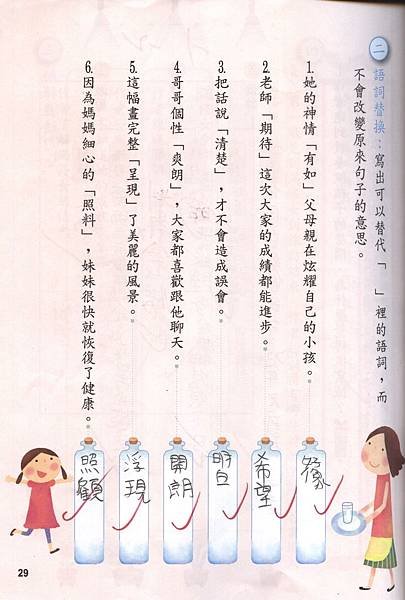 二 語詞替換：寫出可以替代「　」裡的語詞，而
不會改變原來句子的意思。
1.她的神情「有如」父母親在炫耀自己的小孩。
2.老師「期待」這次大家的成績都能進步。
3.把話說「清楚」，才不會造成誤會。
4.哥哥個性「爽朗」，大家都喜歡跟他聊天。
5.這幅畫完整「呈現」了美麗的風景。
6.因為媽媽細心的「照料」，妹妹很快就恢復了健康。
像
希望
明白
開朗
浮現
照顧
29